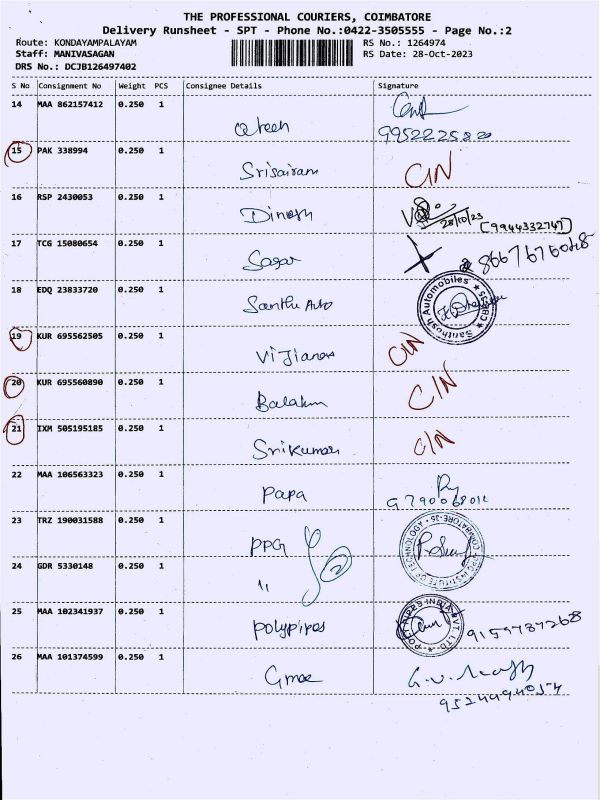 THE PROFESSIONAL COURIERS, COIMBATORE
Delivery Runsheet - SPT - Phone No.:0422-3505555 - Page No.:2
Route: KONDAYAMPALAYAM RS No.: 1264974
Staff: MANIVASAGAN RS Date: 28-Oct-2023
DRS No.: DCJB126497402
S No Consignment No Weight PCS Consignee Details Signature
14 MAA 862157412 0.250 1
15 PAK 338994 0.250 1 Srisairam C/N
16 RSP 2430053 0.250 1 Dinesh 28/10/23 [9944332747]
17 TCG 15080654 0.250 1 Sagar
18 EDQ 23833720 0.250 1 Santhu Auto Santhosh Automobiles
19 KUR 695562505 0.250 1 C/N
20 KUR 695560890 0.250 1 C/N
21 IXM 505195185 0.250 1 Srikumar C/N
22 MAA 106563323 0.250 1 Papa
23 TRZ 190031588 0.250 1 PPG INSTITUTE OF TECHNOLOGY COIMBATORE-35
24 GDR 5330148 0.250 1 "
25 MAA 102341937 0.250 1 Polypipes 9159787268
26 MAA 101374599 0.250 1